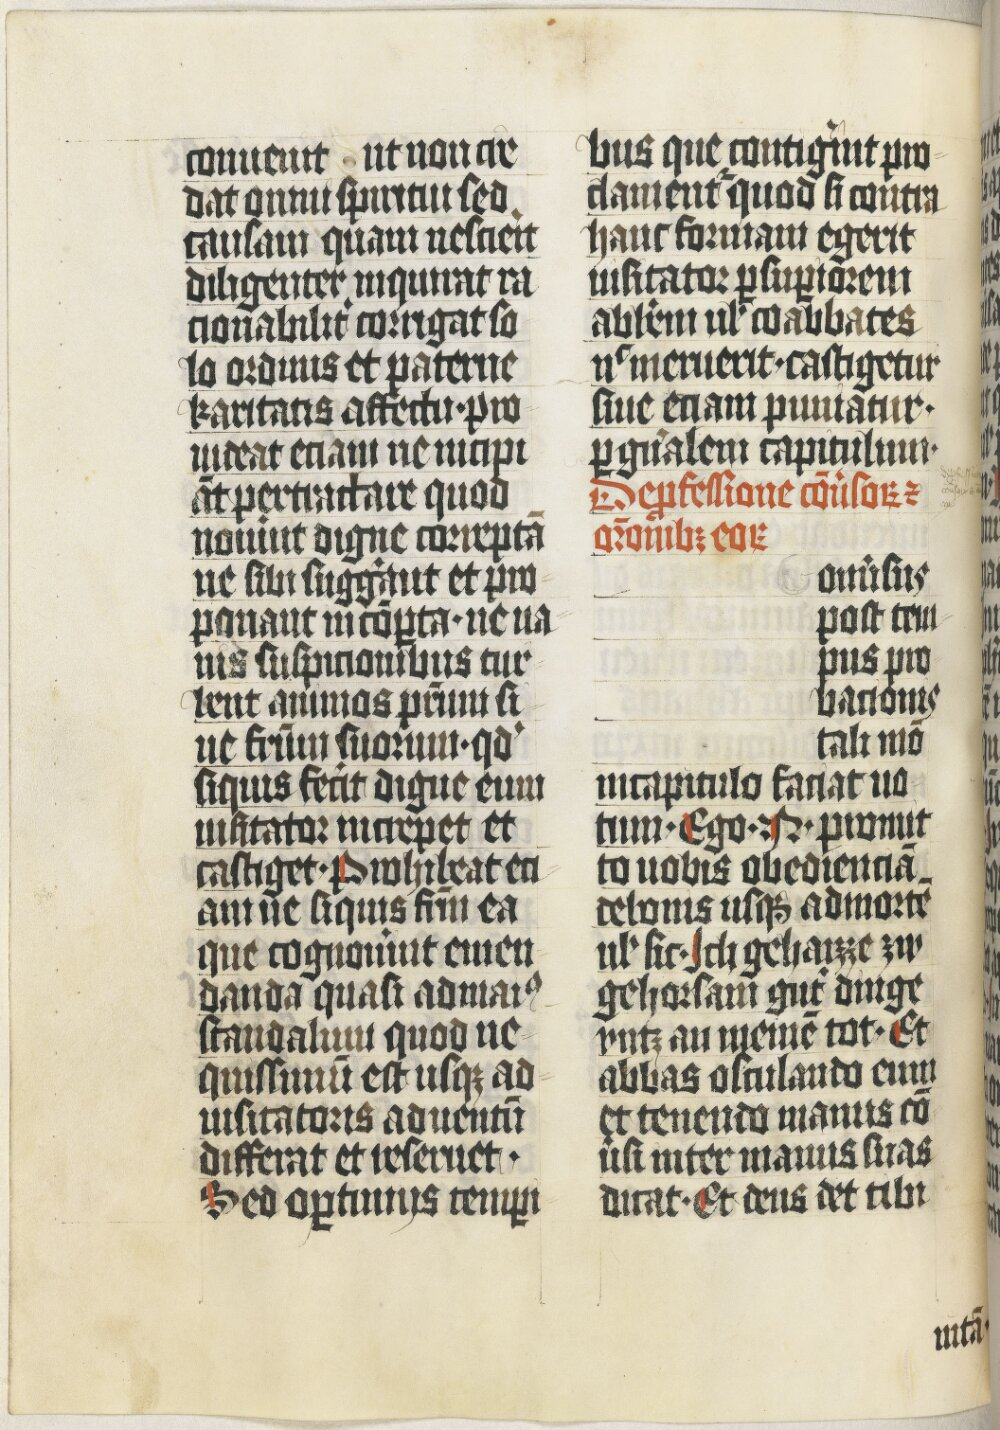 conuenit · ut non cre
dat omni spiritui sed
causam quam nescierit
diligenter inquirat ra
cionabilit̾ corrigat so
lo ordinis et paterne
karitatis affectu · pro
uideat eciam ne incipi
āt pertractare quod
nouint digne correptā
ne sibi sugg̾ant et pro
ponant incōpta · ne ua
nis suspicionibus tur
bent animos p̄rum si
ue fr̄um suorum · qd̾
siquis fecit digne eum
uisitator increpet et
castiget · Prohibeat eci
am ne siquis fr̄m ea
que cognouint emen
danda quasi ad maiꝰ
scandalum quod ne
quissimū est usqꝫ ad
uisitatoris aduentū
differat et reseruet ·
Sed optimis tempi
bus que contig̾int pro
clament̾ quod si contra
hanc formam egerit
uisitator ꝑ supiōrem
abbēm ul̾ coabbates
ut meruerit · castigetur
siue eciam puniatur ·
ꝑ gn̄alem capitulum ·
De ꝓfessione cōu̾soꝝ ⁊
or̄onibꝫ eoꝝ
onu̾sus
post tem
pus pro
bacionis
tali mō
in capitulo faciat uo
tum · Ego · N · promit
to uobis obedienciā
de bonis usqꝫ ad mortē
ul̾ sic · Ich gehaizze zw
gehorsam gut̾ dinge
vntz an meinē tot · Et
abbas osculando eum
et tenendo manus cō
u̾si inter manus suas
dicat · Et deus det tibi
uitā ·